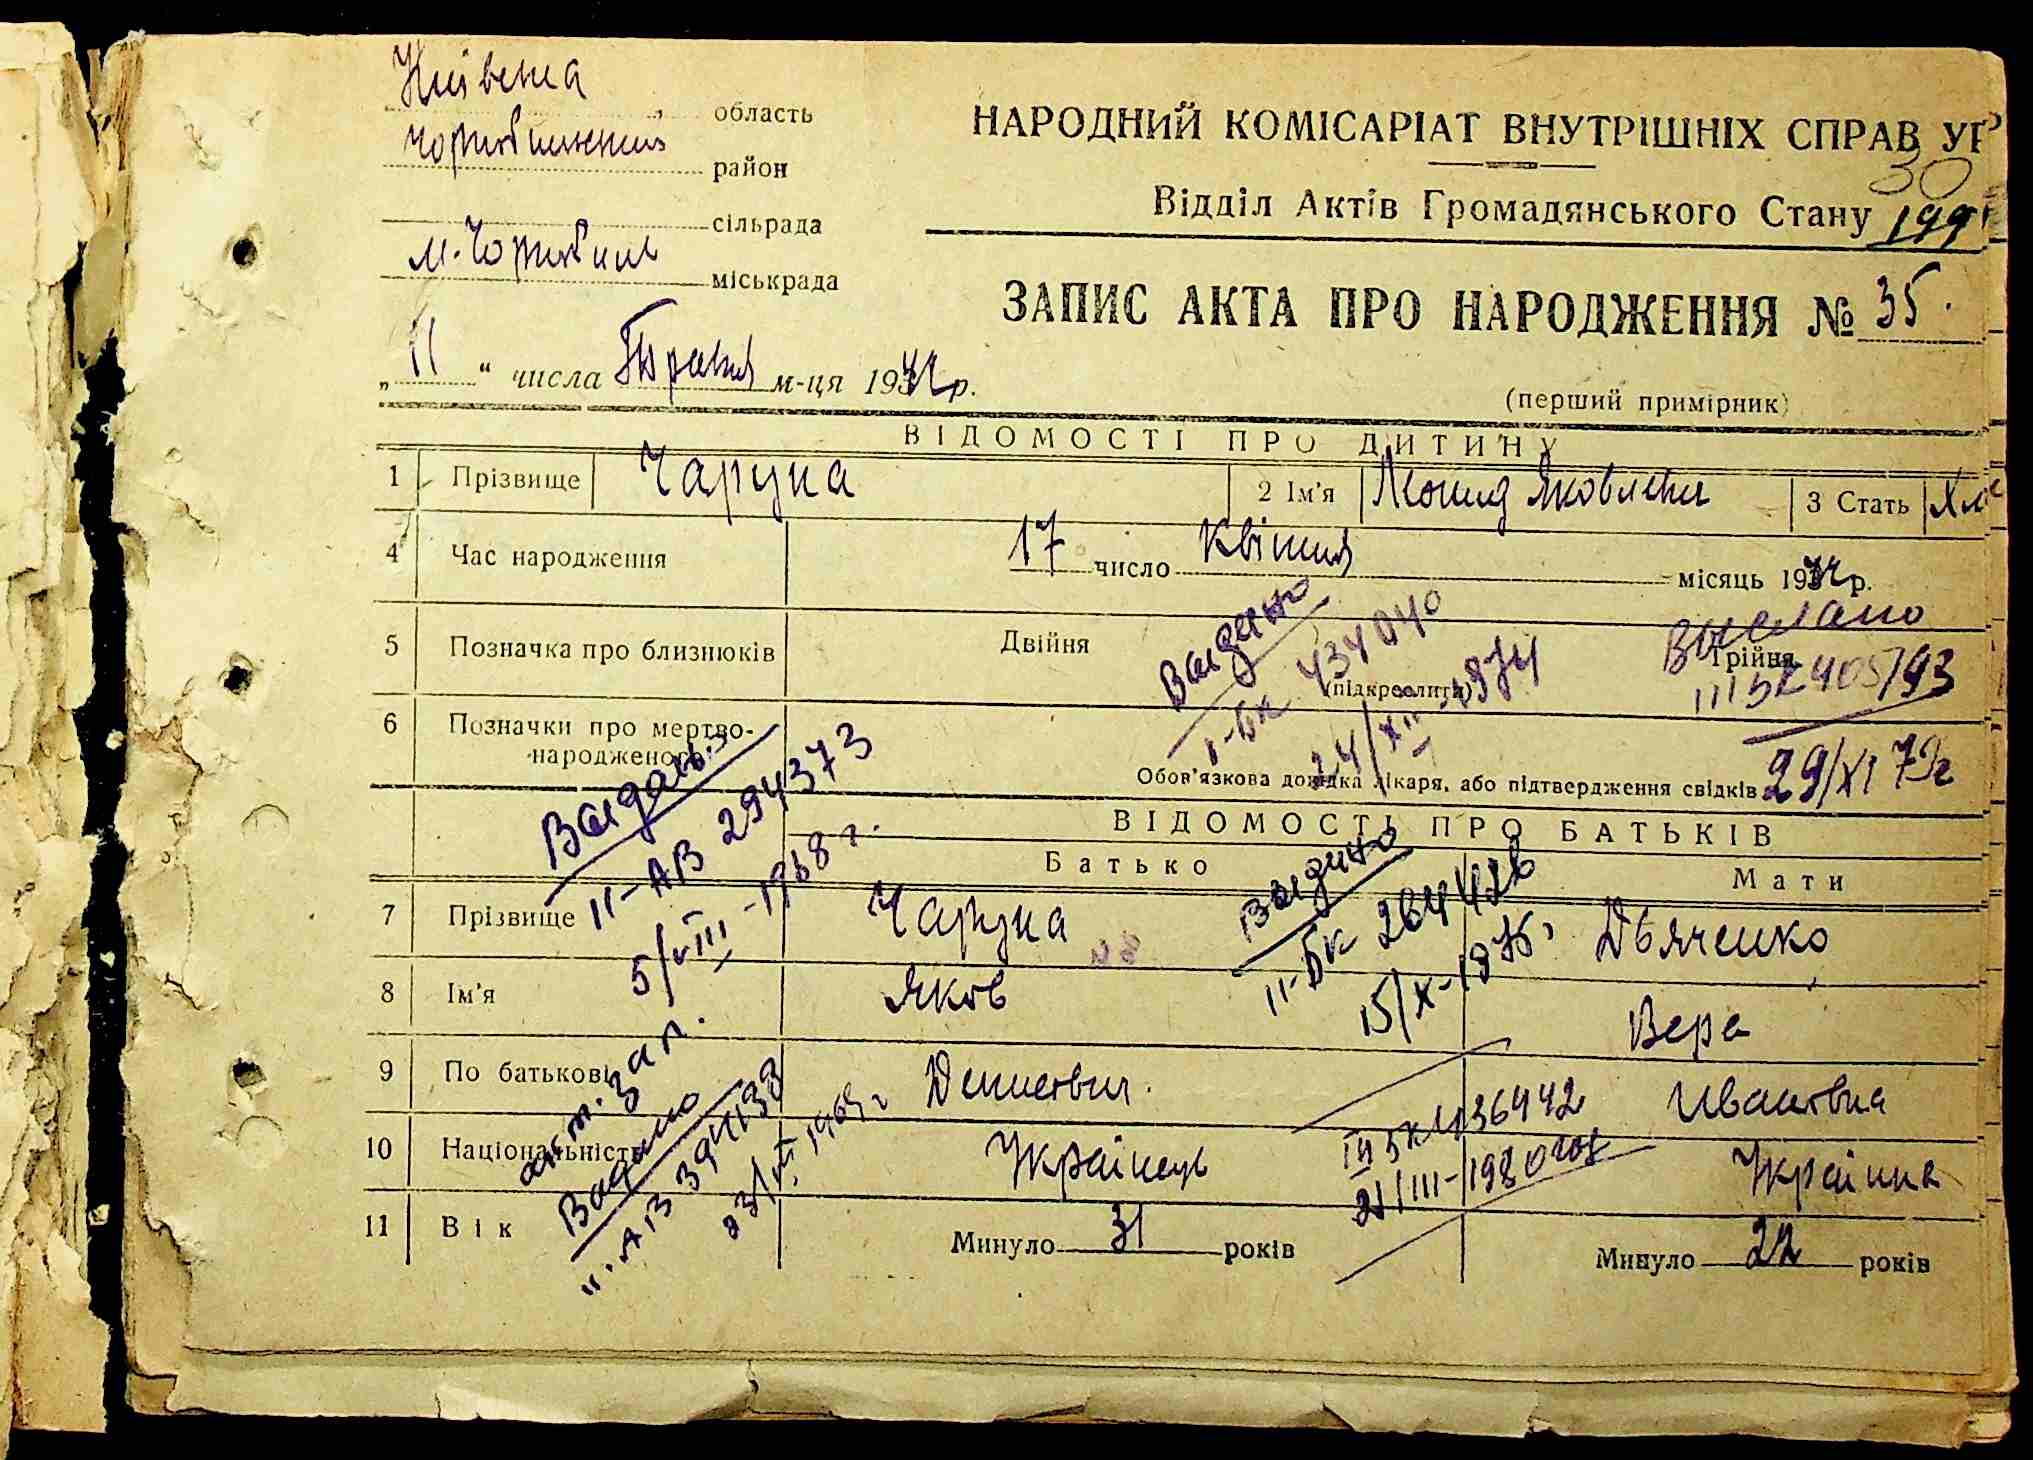 Київська область
НАРОДНИЙ КОМІСАРІАТ ВНУТРІШНІХ СПРАВ УР
Чорнобильський район
30
сільрада
Відділ Актів Громадянського Стану 199
м. Чорнобиль міськрада
ЗАПИС АКТА ПРО НАРОДЖЕННЯ № 35.
„ 11 “ числа Травня м-ця 194 р.
(перший примірник)
ВІДОМОСТІ ПРО ДИТИНУ
1 Прізвище 2 Ім'я Леонид Яковлевич 3 Стать Хл
4 Час народження 17 число Квітня місяць 19 р.
5 Позначка про близнюків Двійня Трійня
(підкреслити)
Выдано
І-БК 434040
24/XII-1974
Выслано
III БК 405193
29/XI 79г
6 Позначки про мертво-
народженого
Обов'язкова довідка лікаря, або підтвердження свідків
II-АВ 294373
5/VIII-1968 г.
ВІДОМОСТІ ПРО БАТЬКІВ
Батько Мати
Выдано
II-БК
15/X-1975
7 Прізвище Дьяченко
8 Ім'я Яков Вера
9 По батькові Денисович. Ивановна
10 Національність Українець Українка
11 Вік Минуло 31 років Минуло 22 років
Выдано
III БК 436442
21/III-1980 год